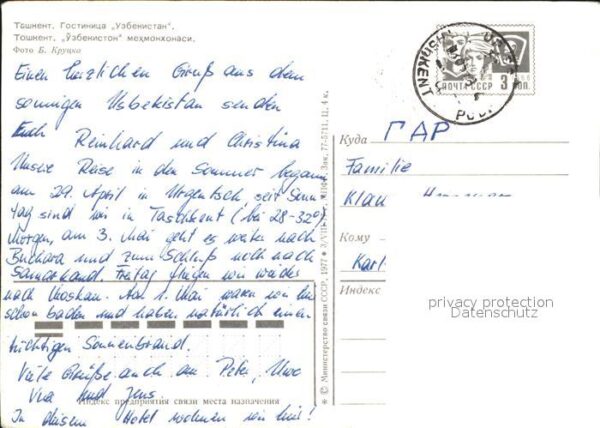 Тошкент. Гостиница „Узбекистан“.
Тошкент. „Ўзбекистон“ меҳмонхонаси.
Фото Б. Круцко
Einen herzlichen Gruß aus dem
sonnigen Usbekistan senden
Euch Reinhard und Christina
Unsere Reise in den Sommer begann
am 29. April in Urgentsch, seit Sonn-
tag sind wir in Taschkent (bei 28-32°)
Morgen, am 3. Mai geht es weiter nach
Buchara und zum Schluß noch nach
Samarkand. Freitag fliegen wir wieder
nach Moskau. Am 1. Mai waren wir hier
schon baden und haben natürlich einen
tüchtigen Sonnenbrand.
Viele Grüße auch an Peter, Uwe
und Jens
In diesem Hotel wohnen wir hier!
Индекс предприятия связи места назначения
© Министерство связи СССР, 1977
Зак. 77-5711. Ц. 4 к.
TACHKENT
ПОЧТА СССР 3 КОП.
Куда ГДР
Familie
Klau
Кому
Karl
Индекс
privacy protection
Datenschutz